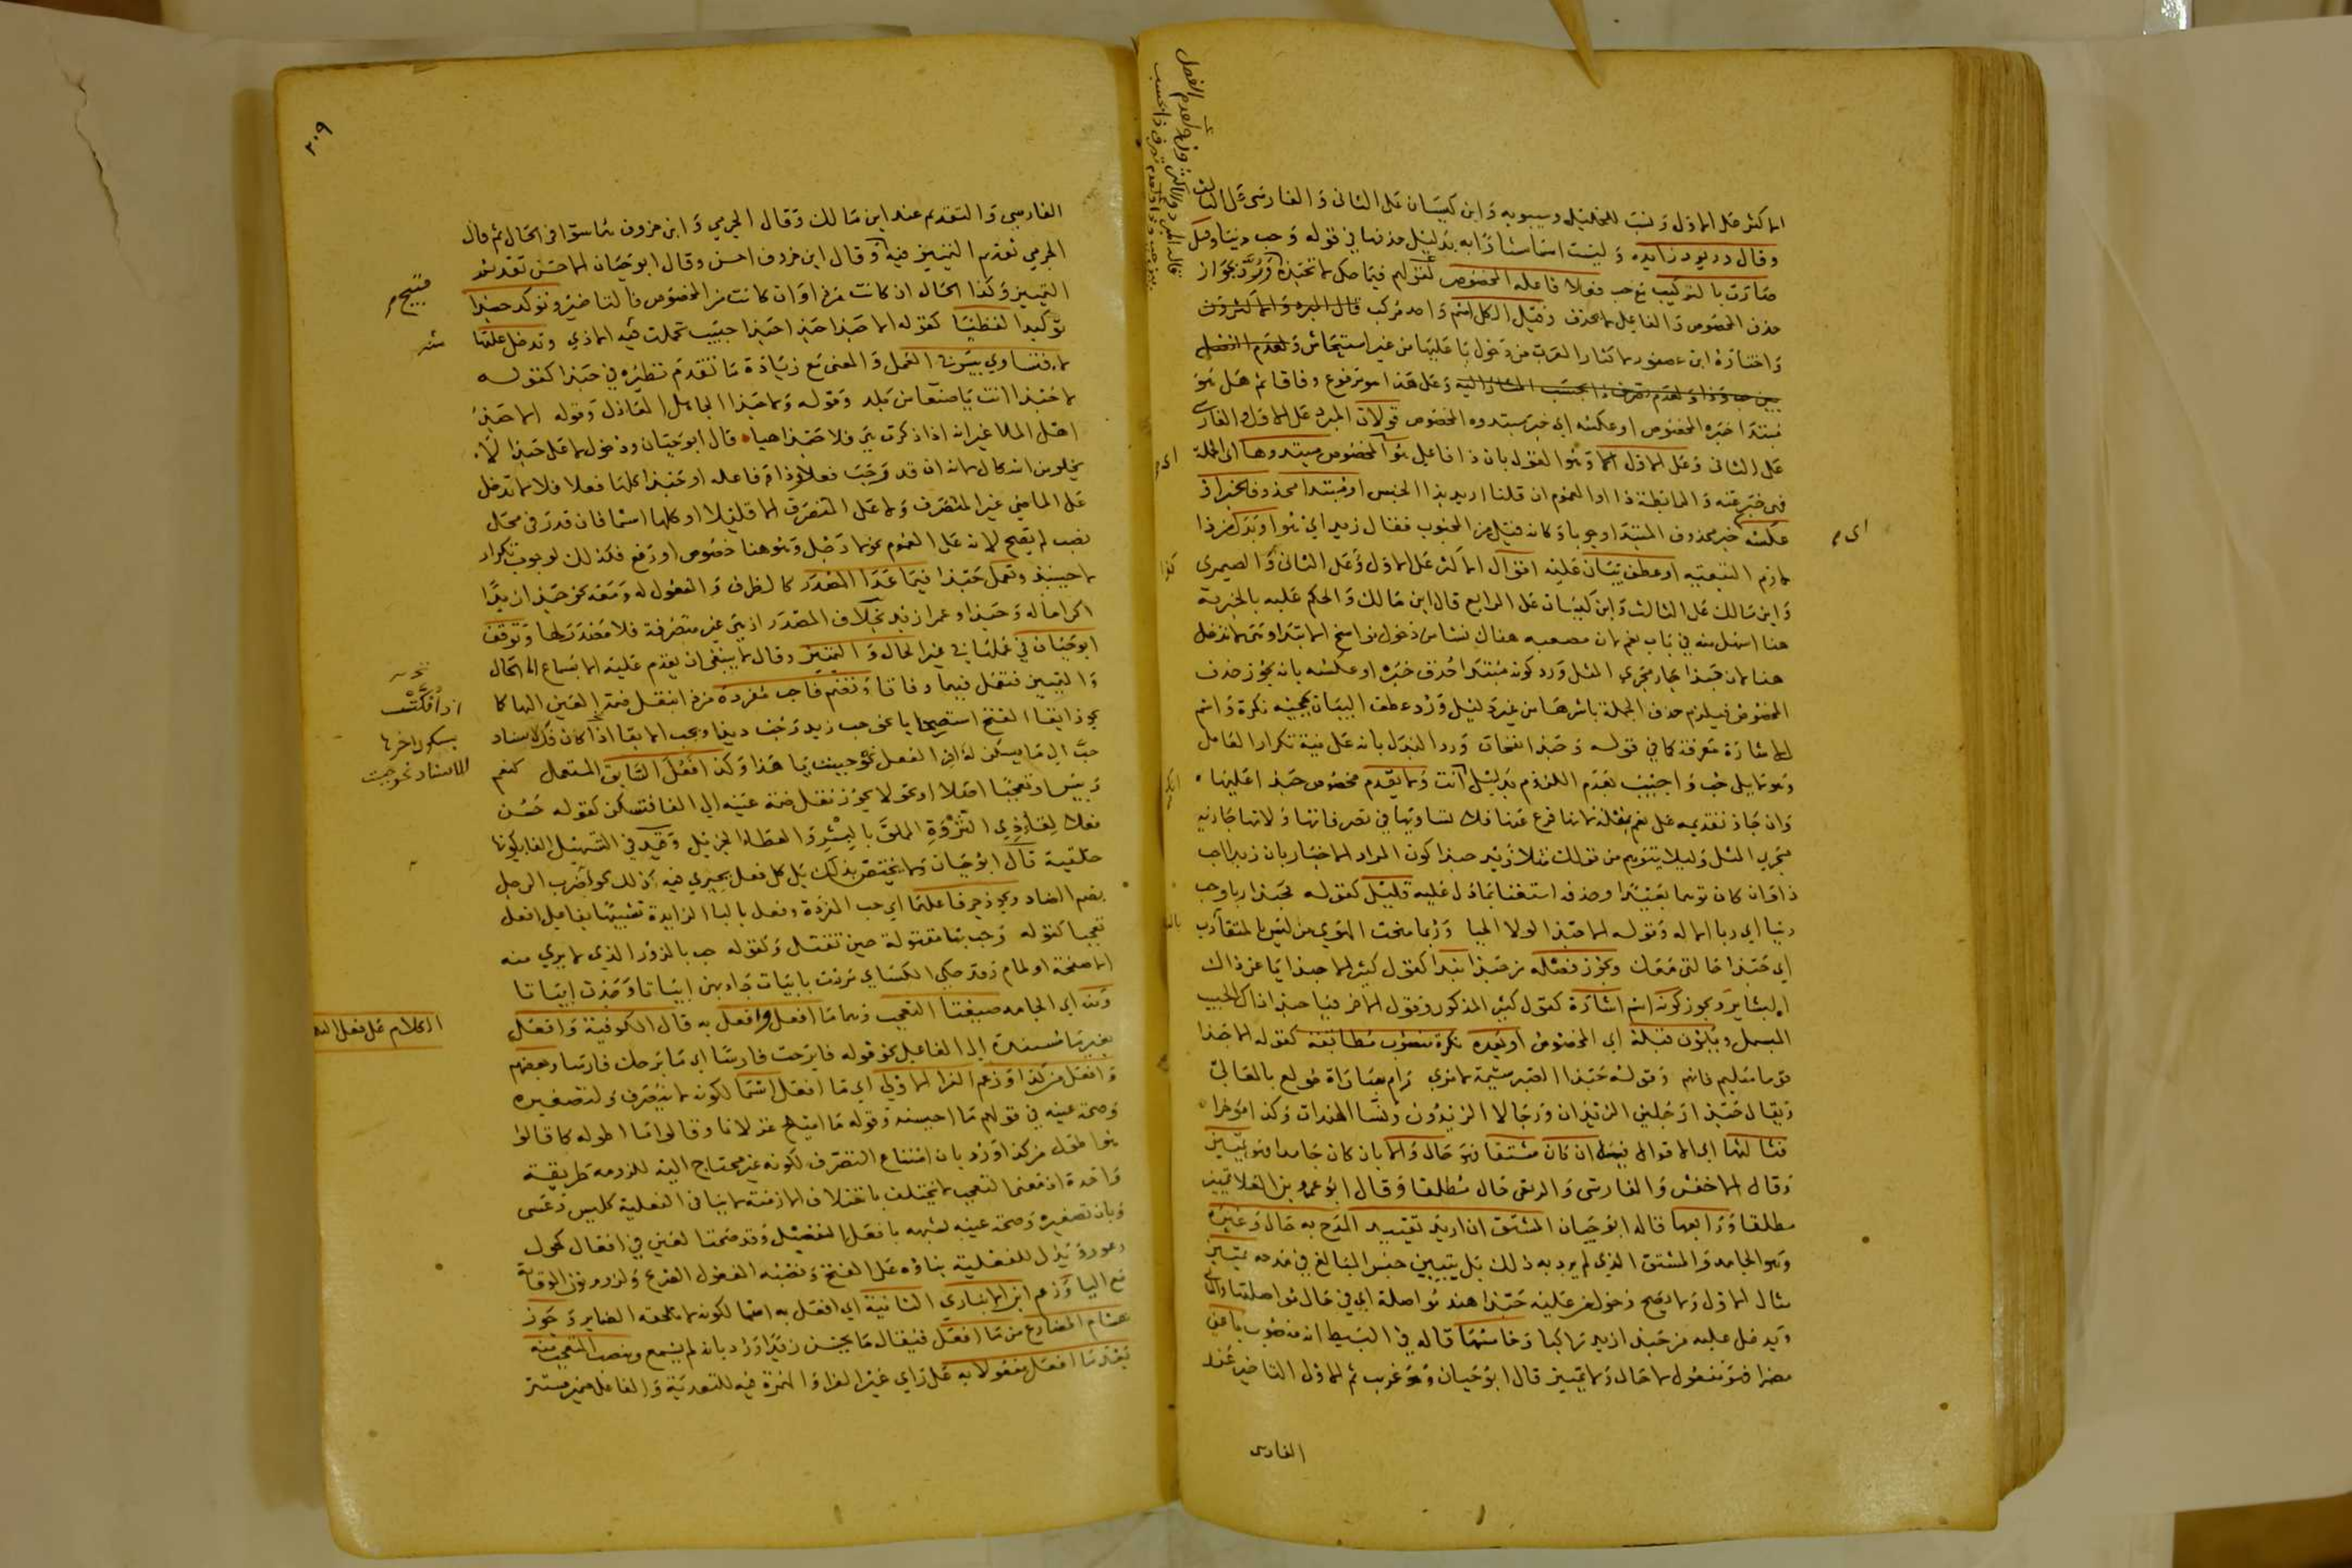 الاكثر على الاول ونسب للخليل وسيبويه وابن كيسان على الثاني والفارسي على الثالث
وقال دريود زايده وليست اسما مشارا به بدليل حذفها في قوله وحب دينا وقيل
صارت بالتركيب مع حب فعلا فاعله المخصوص لقولهم فيما حكى لا تحبذه ورد بجواز
حذف المخصوص والفاعل لا يحذف وقيل الكل اسم واحد مركب قال المبرد والاكثرون
واختاره ابن عصفور لاكثار العرب من دخول يا عليها من غير استيحاش
وعلى هذا هو مرفوع وفاقا ثم هل هو
مبتدا خبره المخصوص او عكسه اي خبر مبتدوه المخصوص قولان المبرد على الاول والفارسي
على الثاني وعلى الاول وهو القول بان ذا فاعل هو المخصوص مبتدوها اي الجملة
فهي خبر عنه والرابطة ذا او العموم ان قلنا اريد بذا الجنس او مبتدا محذوف الخبر او
عكسه خبر محذوف المبتدا وجوبا وكانه قيل من المحبوب فقال زيد اي هو او بدل من ذا
لازم التبعية او عطف بيان عليه اقوال الاكثر على الاول وعلى الثاني والصيمري
وابن مالك على الثالث وابن كيسان على الرابع قال ابن مالك والحكم عليه بالخبرية
هنا اسهل منه في باب نعم لان مصعبه هناك نشا من دخول نواسخ الابتدا وهي لا تدخل
هنا لان حبذا جار مجرى المثل ورد كونه مبتدا حذف خبره او عكسه بانه يجوز حذف
المخصوص فيلزم حذف الجملة باسرها من غير دليل ورد عطف البيان بمجيئه نكرة واسم
الاشارة معرفة كما في قوله وحبذا نفحات ورد البدل بانه على نية تكرار العامل
وهو لا يلي حب واجيب بعدم اللزوم بدليل انت ولا يقدم مخصوص حبذا عليها
وان جاز تقديمه على نعم بقلة لانها فرع عنها فلا تساويها في تصرفاتها ولانها جارية
مجرى المثل وليلا يتوهم من قولك مثلا زيد حبذا كون المراد الاخبار بان زيدا حب
ذا وان كان توهما بعيدا وحذفه استغناء بما دل عليه قليل كقوله فحبذا ربا وحب
دينا اي ربا الاله وقوله الا حبذا لولا الحيا وربما منحت الهوى من ليس بالمتقارب
اي حبذا حالتي معك ويجوز فصله من حبذا بندا كقول كثير الا حبذا يا عز ذاك
التساير ويجوز كونه اسم اشارة كقول كثير المذكور وقول الاخر فيا حبذا ذاك الحبيب
المبسمل ويكون قبله اي المخصوص او بعده نكرة منصوب مطابقة كقوله الا حبذا
قوما سليم فانهم وقوله حبذا الصبر شيمة لامرئ رام مباراة مولع بالمعالي
ويقال حبذا رجلين الزيدان ورجالا الزيدون ونسا الهندات وكذا موخرا
فثالثها اي الاقوال فيها ان كان مشتقا فهو حال والا بان كان جامدا فهو تمييز
وقال الاخفش والفارسي والربعي حال مطلقا وقال ابو عمرو بن العلا تمييز
مطلقا ورابعها قاله ابو حيان المشتق ان اريد تقييد المدح به حال وغيره
وهو الجامد والمشتق الذي لم يرد به ذلك بل تبيين جنس المبالغ في مدحه تمييز
مثال الاول ولا يصح دخول من عليه حبذا هند مواصلة اي في حال مواصلتها والثاني
ويدخل عليه من حبذا زيد راكبا وخامسها قاله في البسيط انه منصوب باعني
مضمرا فهو مفعول لا حال ولا تمييز قال ابو حيان وهو غريب ثم الاول التاخير عند
الفارسي
٢٠٩
الفارسي والتقديم عند ابن مالك وقال الجرمي وابن خروف هما سواء في الحال ثم قال
الجرمي تقديم التمييز قبيح وقال ابن خروف احسن وقال ابو حيان الاحسن تقديم
التمييز وكذا الحال ان كانت من ذا وان كانت من المخصوص فالتاخير وتوكد حبذا
توكيدا لفظيا كقوله الا حبذا حبذا حبذا حبيب تحملت فيه الاذى وتدخل عليها
لا فتساوي بيس في العمل والمعنى مع زيادة ما تقدم نظيره في حبذا كقوله
لا حبذا انت يا صنعا من بلد وقوله ولا حبذا الجاهل العاذل وقوله الا حبذا
اهل الملا غير انه اذا ذكرت مي فلا حبذا هيا قال ابو حيان ودخول لا على حبذا لا
يخلو من اشكال لانه ان قدر حب فعلا وذا فاعله او حبذا كلها فعلا فلا لا تدخل
على الماضي غير المتصرف ولا على المتصرف الا قليلا او كلها اسما فان قدر في محل
نصب لم يصح لانه على العموم نحو لا رجل وهو هنا خصوص او رفع فكذلك لوجوب تكرار
لا حينئذ وتعمل حبذا فيما عدا المصدر كالظرف والمفعول له ومعه نحو حبذا زيد
اكراما له وحبذا وعمرا زيد بخلاف المصدر اذ هي غير متصرفة فلا مصدر لها وتوقف
ابو حيان في عملها في غير الحال والتمييز وقال لا ينبغي ان يقدم عليه الا بسماع الا الحال
والتمييز فتعمل فيهما وفاقا وتضم فا حب مفردة من ذا بنقل ضمة العين اليها كما
يجوز ابقا الفتح استصحابا نحو حب زيد رجلا وحب دينا ويجب الابقا اذا كان فك لاسناد
حب الى ما يسكن له اخر الفعل نحو حببت يا هذا وكذا فعل السابق المستعمل كنعم
وبيس او تعجبا اصلا او تحولا يجوز نقل ضمة عينه الى الفا فتسكن كقوله حسن
فعلا لقاء ذي الثروة المملق بالبشر والعطاء الجزيل وقيد في التسهيل الفا بكونها
حلقية قال ابو حيان ولا يختص بذلك بل كل فعل يجري فيه ذلك نحو لضرب الرجل
بضم الضاد ويجوز جر فاعلها اي حب المفردة وفعل بالبا الزايدة تشبيها بفاعل افعل
تعجبا كقوله وحب بها مقتولة حين تقتل وكقوله حب بالزور الذي لا يرى منه
الا صفحة او لمام وقد حكى الكساي مررت بابيات جاد بهن ابياتا وجدن ابياتا
ومنه اي الجامد صيغتا التعجب وهما ما افعل وافعل به قال الكوفية وافعل
بغير ما مسندة الى الفاعل نحو قوله فابرحت فارسا اي ما ابرحك فارسا وبعضهم
وافعل من كذا وزعم الفرا الاولى اي ما افعل اسما لكونه لا يتصرف ولتصغيره
وصحة عينه في قولهم ما احيسنه وقوله ما اميلح غزلانا وقالوا ما اطوله كما قالوا
هو اطول من كذا ورد بان امتناع التصرف لكونه غير محتاج اليه للزومه طريقة
واحدة اذ معنى التعجب لا يختلف باختلاف الازمنة لا ينافي الفعلية كليس وعسى
وبان تصغيره وصحة عينه لشبهه بافعل التفضيل وقد صحت العين في افعال كحول
وعور ويدل للفعلية بناوه على الفتح ونصبه المفعول الصريح ولزوم نون الوقاية
مع اليا وزعم ابن الانباري الثانية اي افعل به اسما لكونه لا تلحقه الضماير وجوز
هشام المضارع من ما افعل فيقال ما يحسن زيدا ورد بانه لم يسمع وينصب المتعجب منه
بعد ما افعل مفعولا به على راي غير الفرا والهمزة فيه للتعدية والفاعل ضمير مستتر
الكلام على فعل